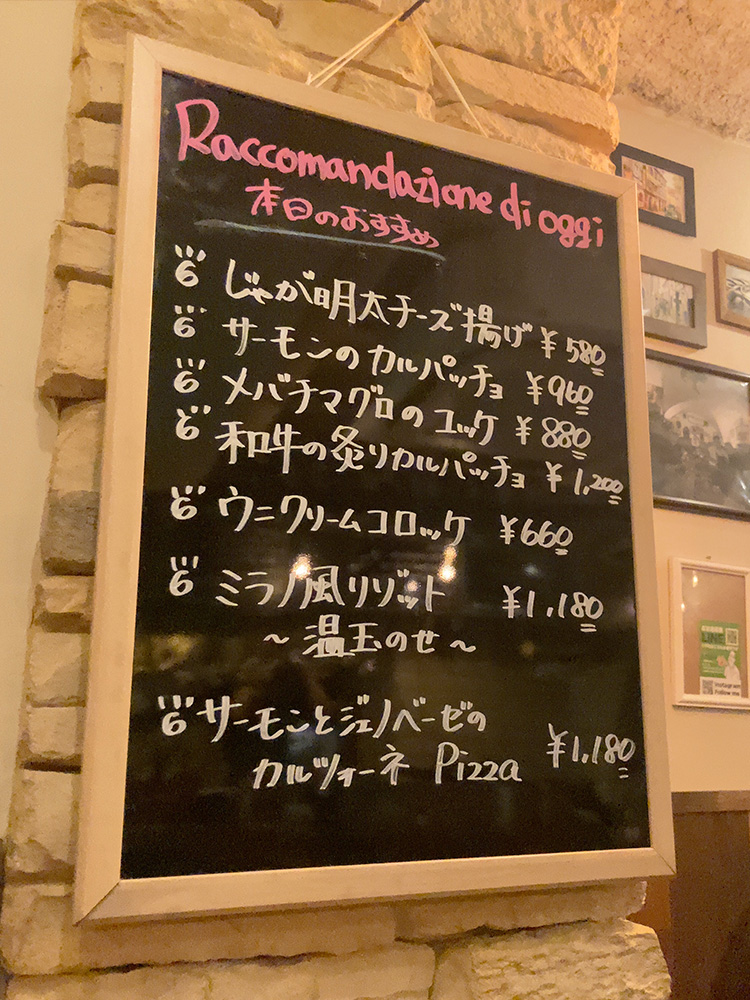 Raccomandazione di oggi
本日のおすすめ
じゃが明太チーズ揚げ ¥580
サーモンのカルパッチョ ¥960
メバチマグロのユッケ ¥880
和牛の炙りカルパッチョ ¥1,200
ウニクリームコロッケ ¥660
ミラノ風リゾット ¥1,180
～温玉のせ～
サーモンとジェノベーゼの
カルツォーネ Pizza ¥1,180
LINE
Instagram
Follow me